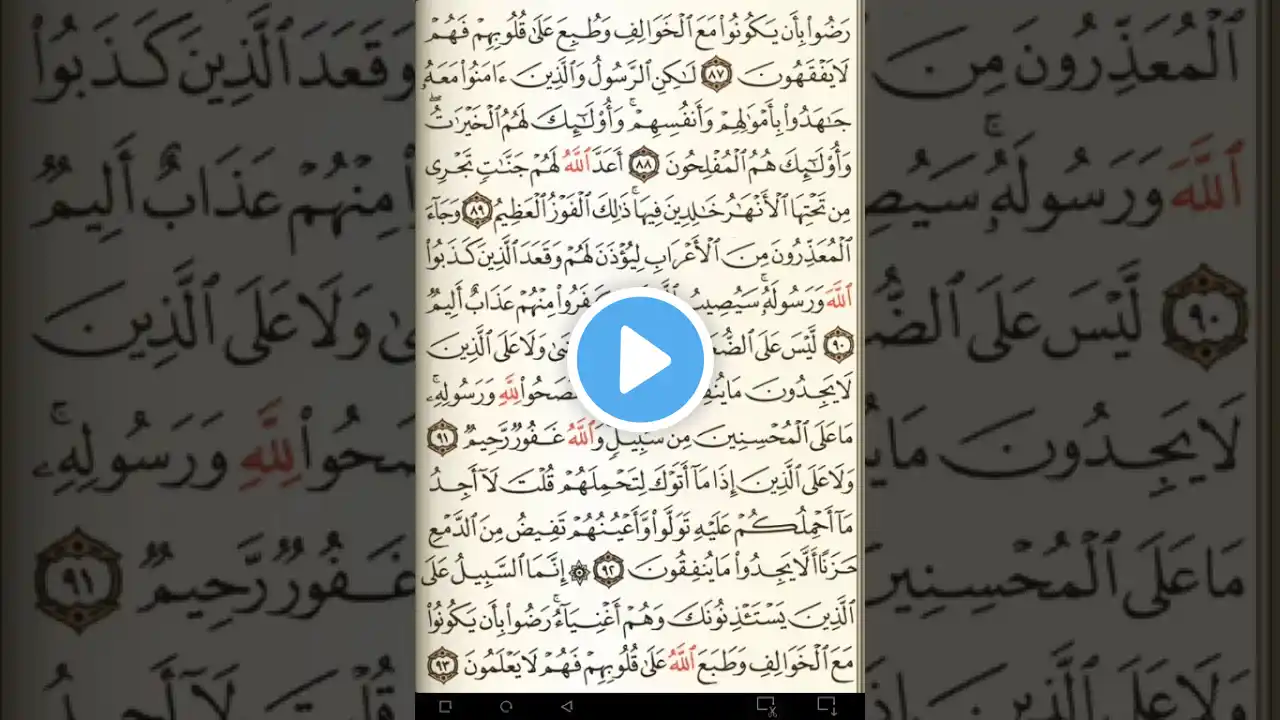 رَضُوا۟ بِأَن يَكُونُوا۟ مَعَ ٱلْخَوَالِفِ وَطُبِعَ عَلَىٰ قُلُوبِهِمْ فَهُمْ
لَا يَفْقَهُونَ ٨٧ لَٰكِنِ ٱلرَّسُولُ وَٱلَّذِينَ ءَامَنُوا۟ مَعَهُۥ
جَٰهَدُوا۟ بِأَمْوَٰلِهِمْ وَأَنفُسِهِمْ ۚ وَأُو۟لَٰٓئِكَ لَهُمُ ٱلْخَيْرَٰتُ ۖ
وَأُو۟لَٰٓئِكَ هُمُ ٱلْمُفْلِحُونَ ٨٨ أَعَدَّ ٱللَّهُ لَهُمْ جَنَّٰتٍ تَجْرِى
مِن تَحْتِهَا ٱلْأَنْهَٰرُ خَٰلِدِينَ فِيهَا ۚ ذَٰلِكَ ٱلْفَوْزُ ٱلْعَظِيمُ ٨٩ وَجَآءَ
ٱلْمُعَذِّرُونَ مِنَ ٱلْأَعْرَابِ لِيُؤْذَنَ لَهُمْ وَقَعَدَ ٱلَّذِينَ كَذَبُوا۟
ٱللَّهَ وَرَسُولَهُۥ ۚ سَيُصِيبُ كَفَرُوا۟ مِنْهُمْ عَذَابٌ أَلِيمٌ
٩٠ لَّيْسَ عَلَى وَلَا عَلَى ٱلَّذِينَ
لَا يَجِدُونَ مَا نَصَحُوا۟ لِلَّهِ وَرَسُولِهِۦ ۚ
مَا عَلَى ٱلْمُحْسِنِينَ مِن سَبِيلٍ ۚ وَٱللَّهُ غَفُورٌ رَّحِيمٌ ٩١
وَلَا عَلَى ٱلَّذِينَ إِذَا مَآ أَتَوْكَ لِتَحْمِلَهُمْ قُلْتَ لَآ أَجِدُ
مَآ أَحْمِلُكُمْ عَلَيْهِ تَوَلَّوا۟ وَّأَعْيُنُهُمْ تَفِيضُ مِنَ ٱلدَّمْعِ
حَزَنًا أَلَّا يَجِدُوا۟ مَا يُنفِقُونَ ٩٢ ۞ إِنَّمَا ٱلسَّبِيلُ عَلَى
ٱلَّذِينَ يَسْتَـْٔذِنُونَكَ وَهُمْ أَغْنِيَآءُ ۚ رَضُوا۟ بِأَن يَكُونُوا۟
مَعَ ٱلْخَوَالِفِ وَطَبَعَ ٱللَّهُ عَلَىٰ قُلُوبِهِمْ فَهُمْ لَا يَعْلَمُونَ ٩٣